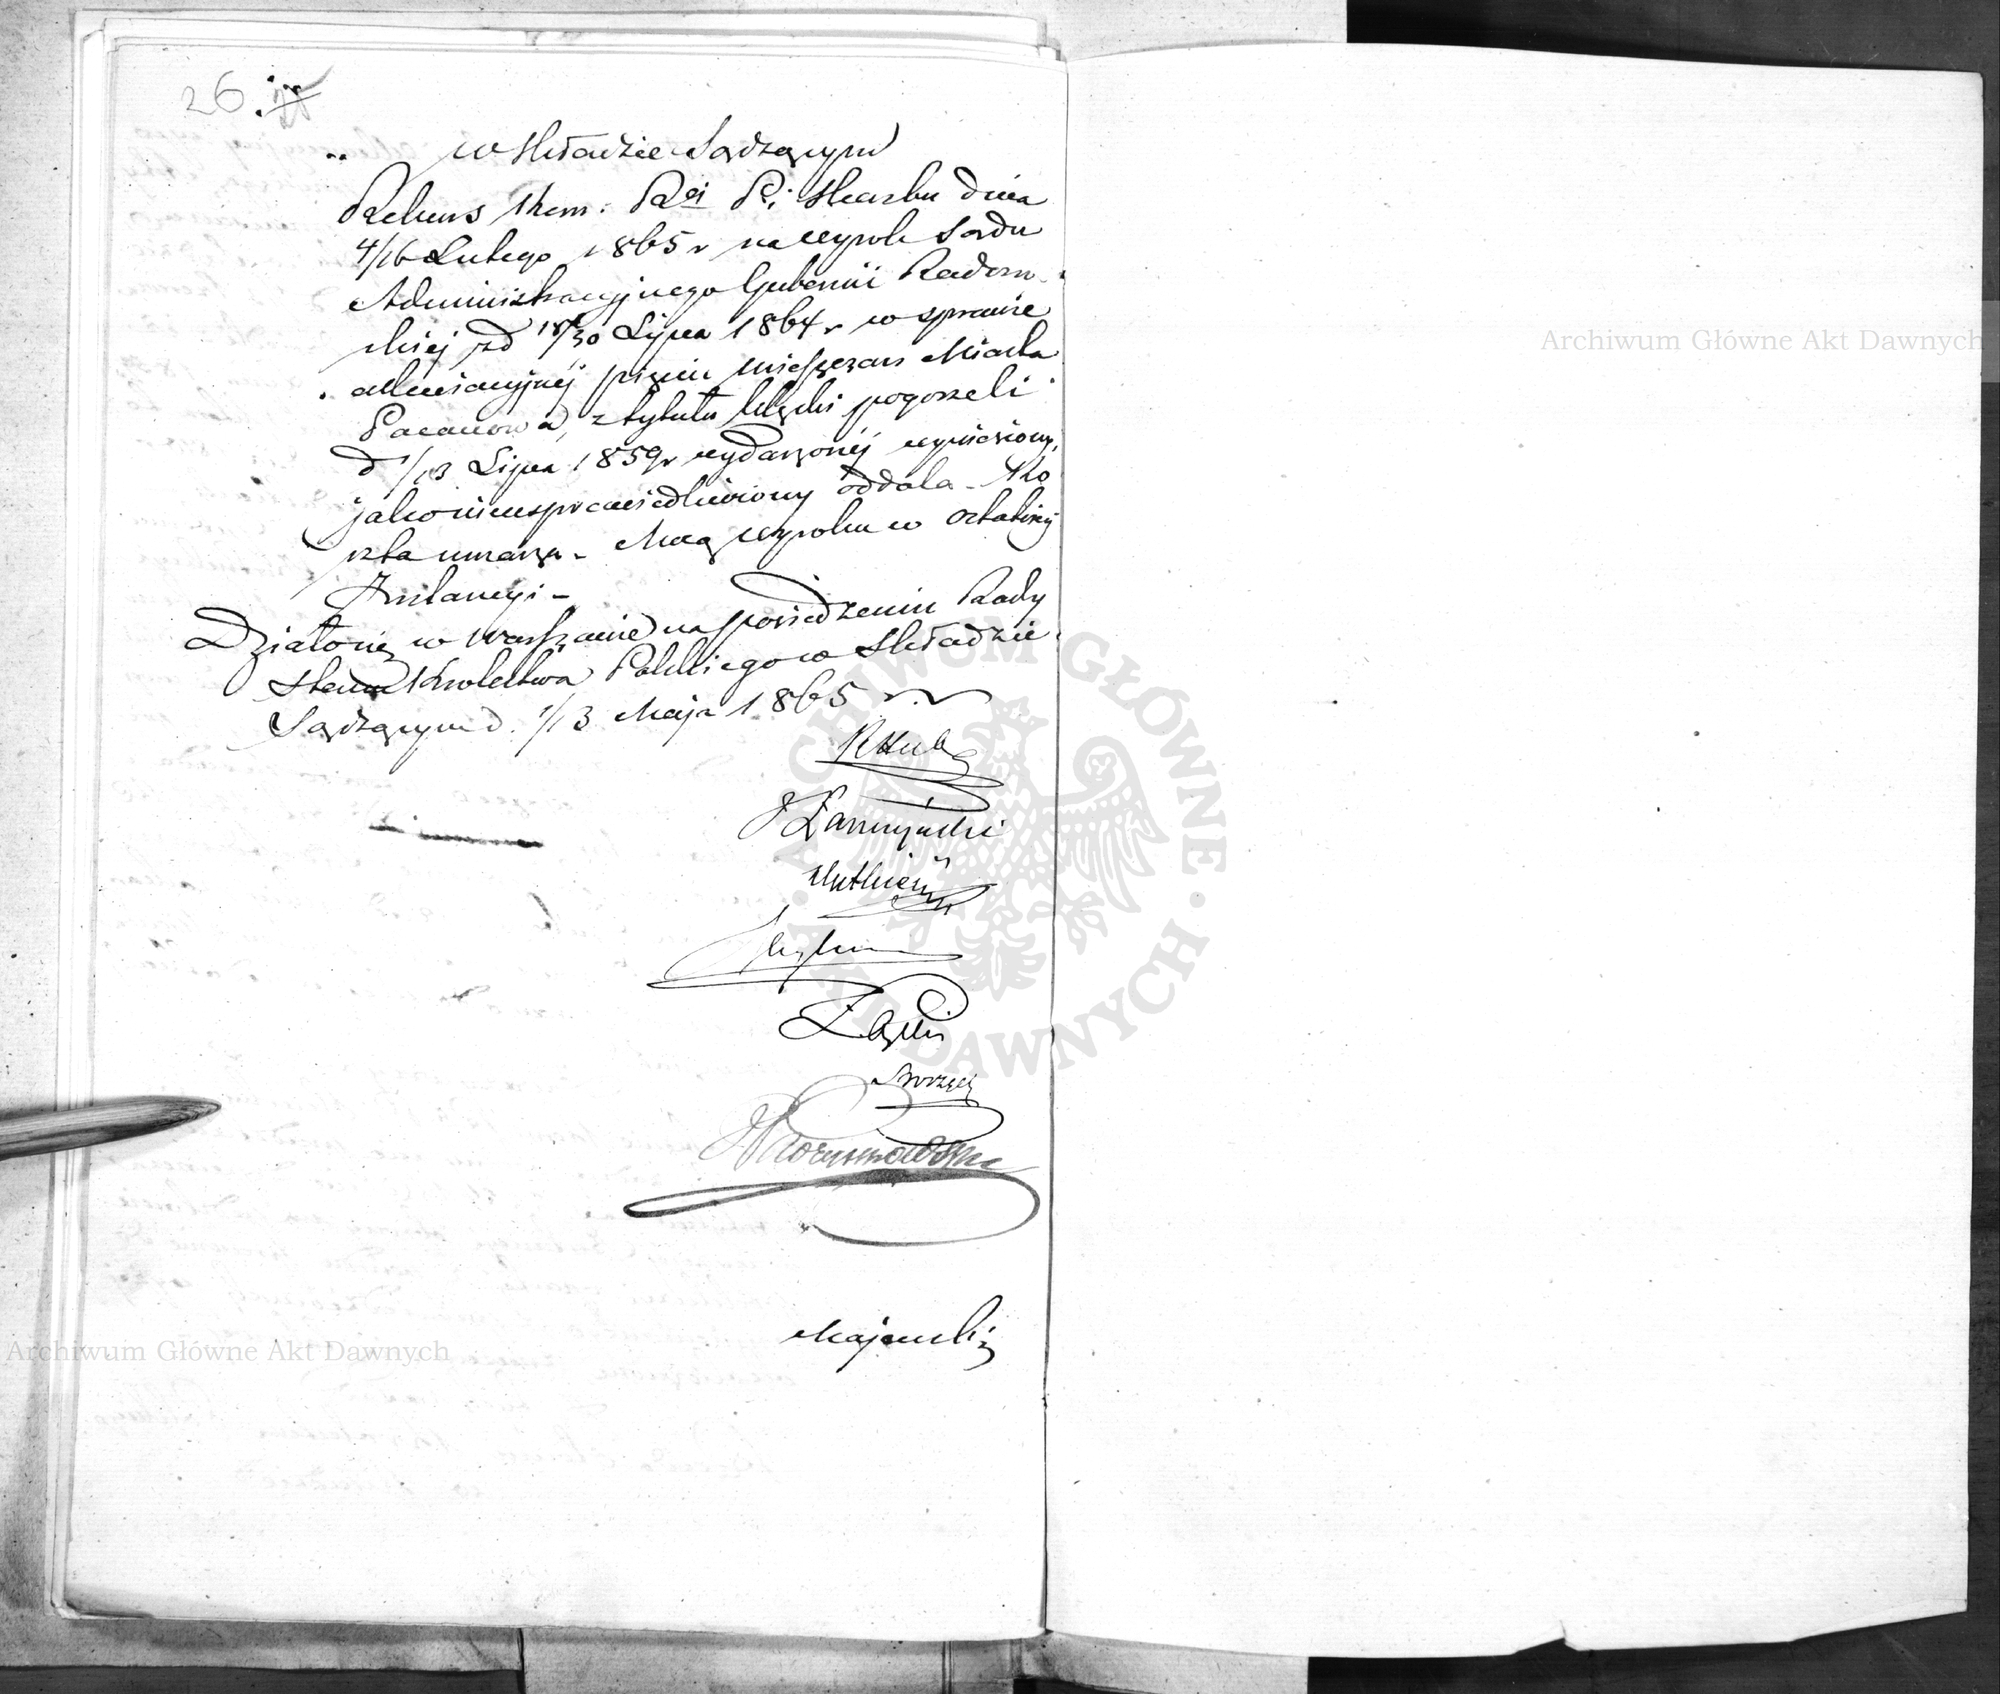 26.
w Składzie Sądzącym
Rekurs Kom: R. P. i Skarbu dnia
4/16 Lutego 1865 r na wyrok Sądu
Administracyjnego Gubernii Radom
skiej z d 18/30 Lipca 1864 r w sprawie
pięciu mieszczan Miasta
Pacanowa, z tytułu klęski pogorzeli
d 1/13 Lipca 1859 r wydarzonéj wyniesiony,
jako niesprawiedliwiony oddala - Ko
szta umarza - Mocą wyroku w ostatniej
Instancyi -
Działo się w Warszawie na posiedzeniu Rady
Stanu Królestwa Polskiego w Składzie
Sądzącym d. 1/13 Maja 1865 r.
RHub
Łaski
Majewski
Archiwum Główne Akt Dawnych
Archiwum Główne Akt Dawnych
ARCHIWUM GŁÓWNE AKT DAWNYCH